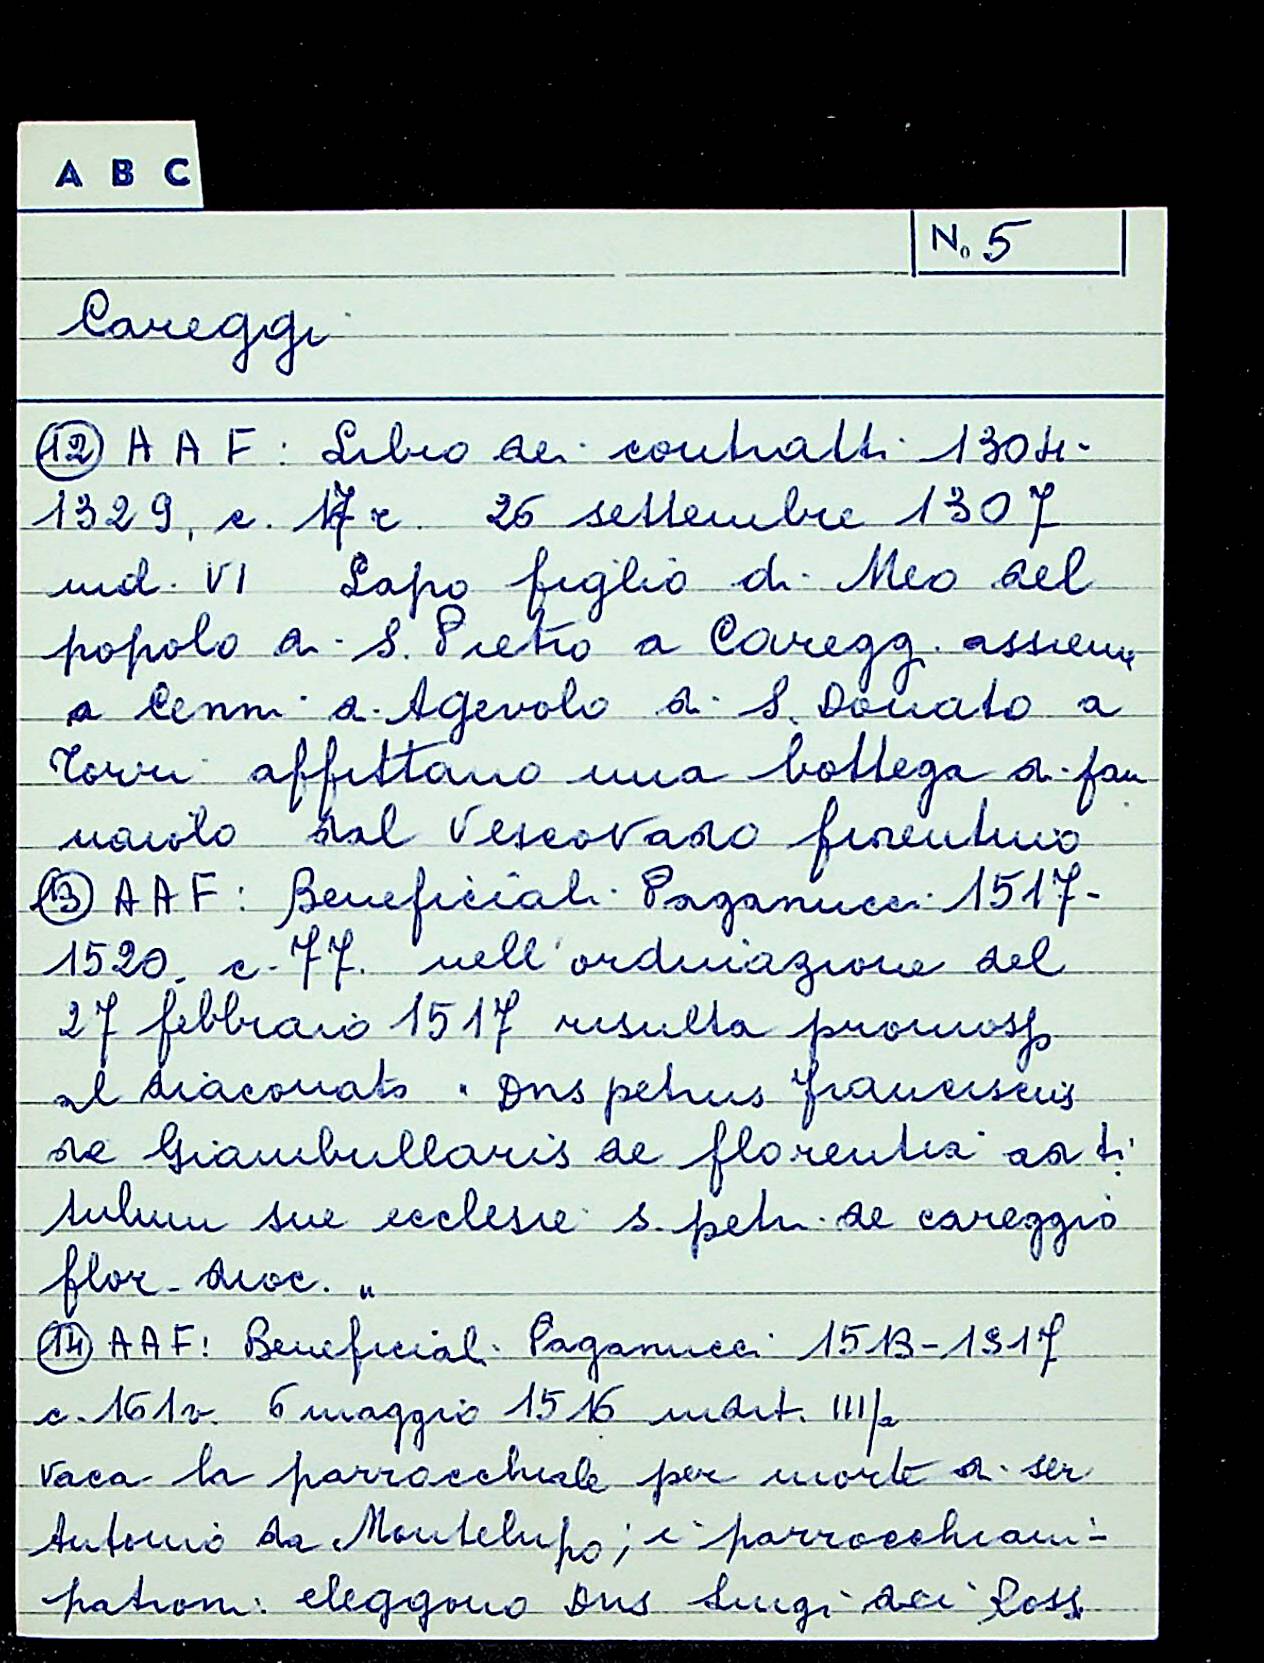 A B C
N. 5
Careggi
(12) A A F : Libro dei contratti 1304-
1329, c. 17 r. 26 settembre 1307
ind. VI Lapo figlio di Meo del
popolo di S. Pietro a Caregg. assieme
a Cenni di Agevolo di S. Donato a
Torri affittano una bottega di for
naiolo dal Vescovado fiorentino
(13) A A F : Beneficiali Paganucci 1517-
1520, c. 77. nell'ordinazione del
27 febbraio 1517 risulta promosso
al diaconato " Dns petrus franciscus
de Giambullaris de florentia ad ti
tulum sue ecclesie s. petri de careggio
flor. dioc. "
(14) A A F : Beneficial. Paganucci 1513-1517
c. 161v. 6 maggio 1516 indit. III/a
vaca la parrocchiale per morte di ser
Antonio da Montelupo; i parrocchiani-
patroni eleggono Dns Luigi dei Rossi